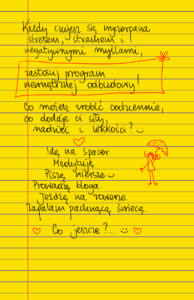 Kiedy czujesz się wyczerpana
stresem, strachem i
negatywnymi myślami,
zastosuj program
wewnętrznej odbudowy!
Co możesz zrobić codziennie,
co dodaje ci siły,
nadziei i lekkości?
Idę na spacer
Medytuję
Piszę wiersze
Prowadzę bloga
Jeżdżę na rowerze
Zapalam pachnącą świecę.
Co jeszcze?...